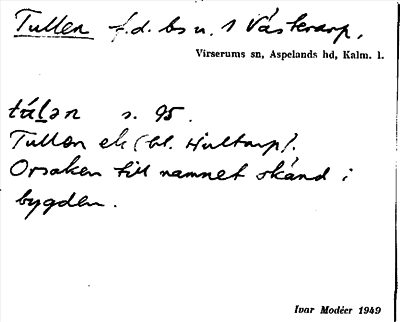 Tullen f.d. bs u. 1 Västerarp,
Virserums sn, Aspelands hd, Kalm. l.
tálən s. 95.
Tullen ek (bl. Hultarp).
Orsaken till namnet okänd i
bygden.
Ivar Modéer 1949